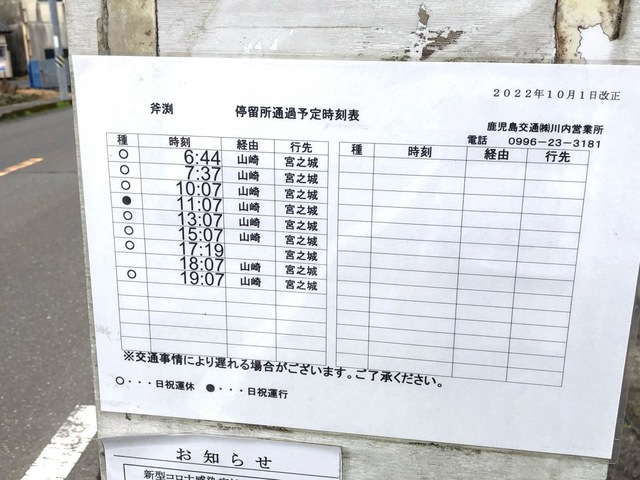 2022年10月1日改正
斧渕 停留所通過予定時刻表
鹿児島交通㈱川内営業所
電話 0996-23-3181
種 時刻 経由 行先 種 時刻 経由 行先
○ 6:44 山崎 宮之城
○ 7:37 山崎 宮之城
○ 10:07 山崎 宮之城
● 11:07 山崎 宮之城
○ 13:07 山崎 宮之城
○ 15:07 山崎 宮之城
○ 17:19 宮之城
18:07 山崎 宮之城
○ 19:07 山崎 宮之城
※交通事情により遅れる場合がございます。ご了承ください。
○・・・日祝運休 ●・・・日祝運行
お知らせ
新型コロナ感染